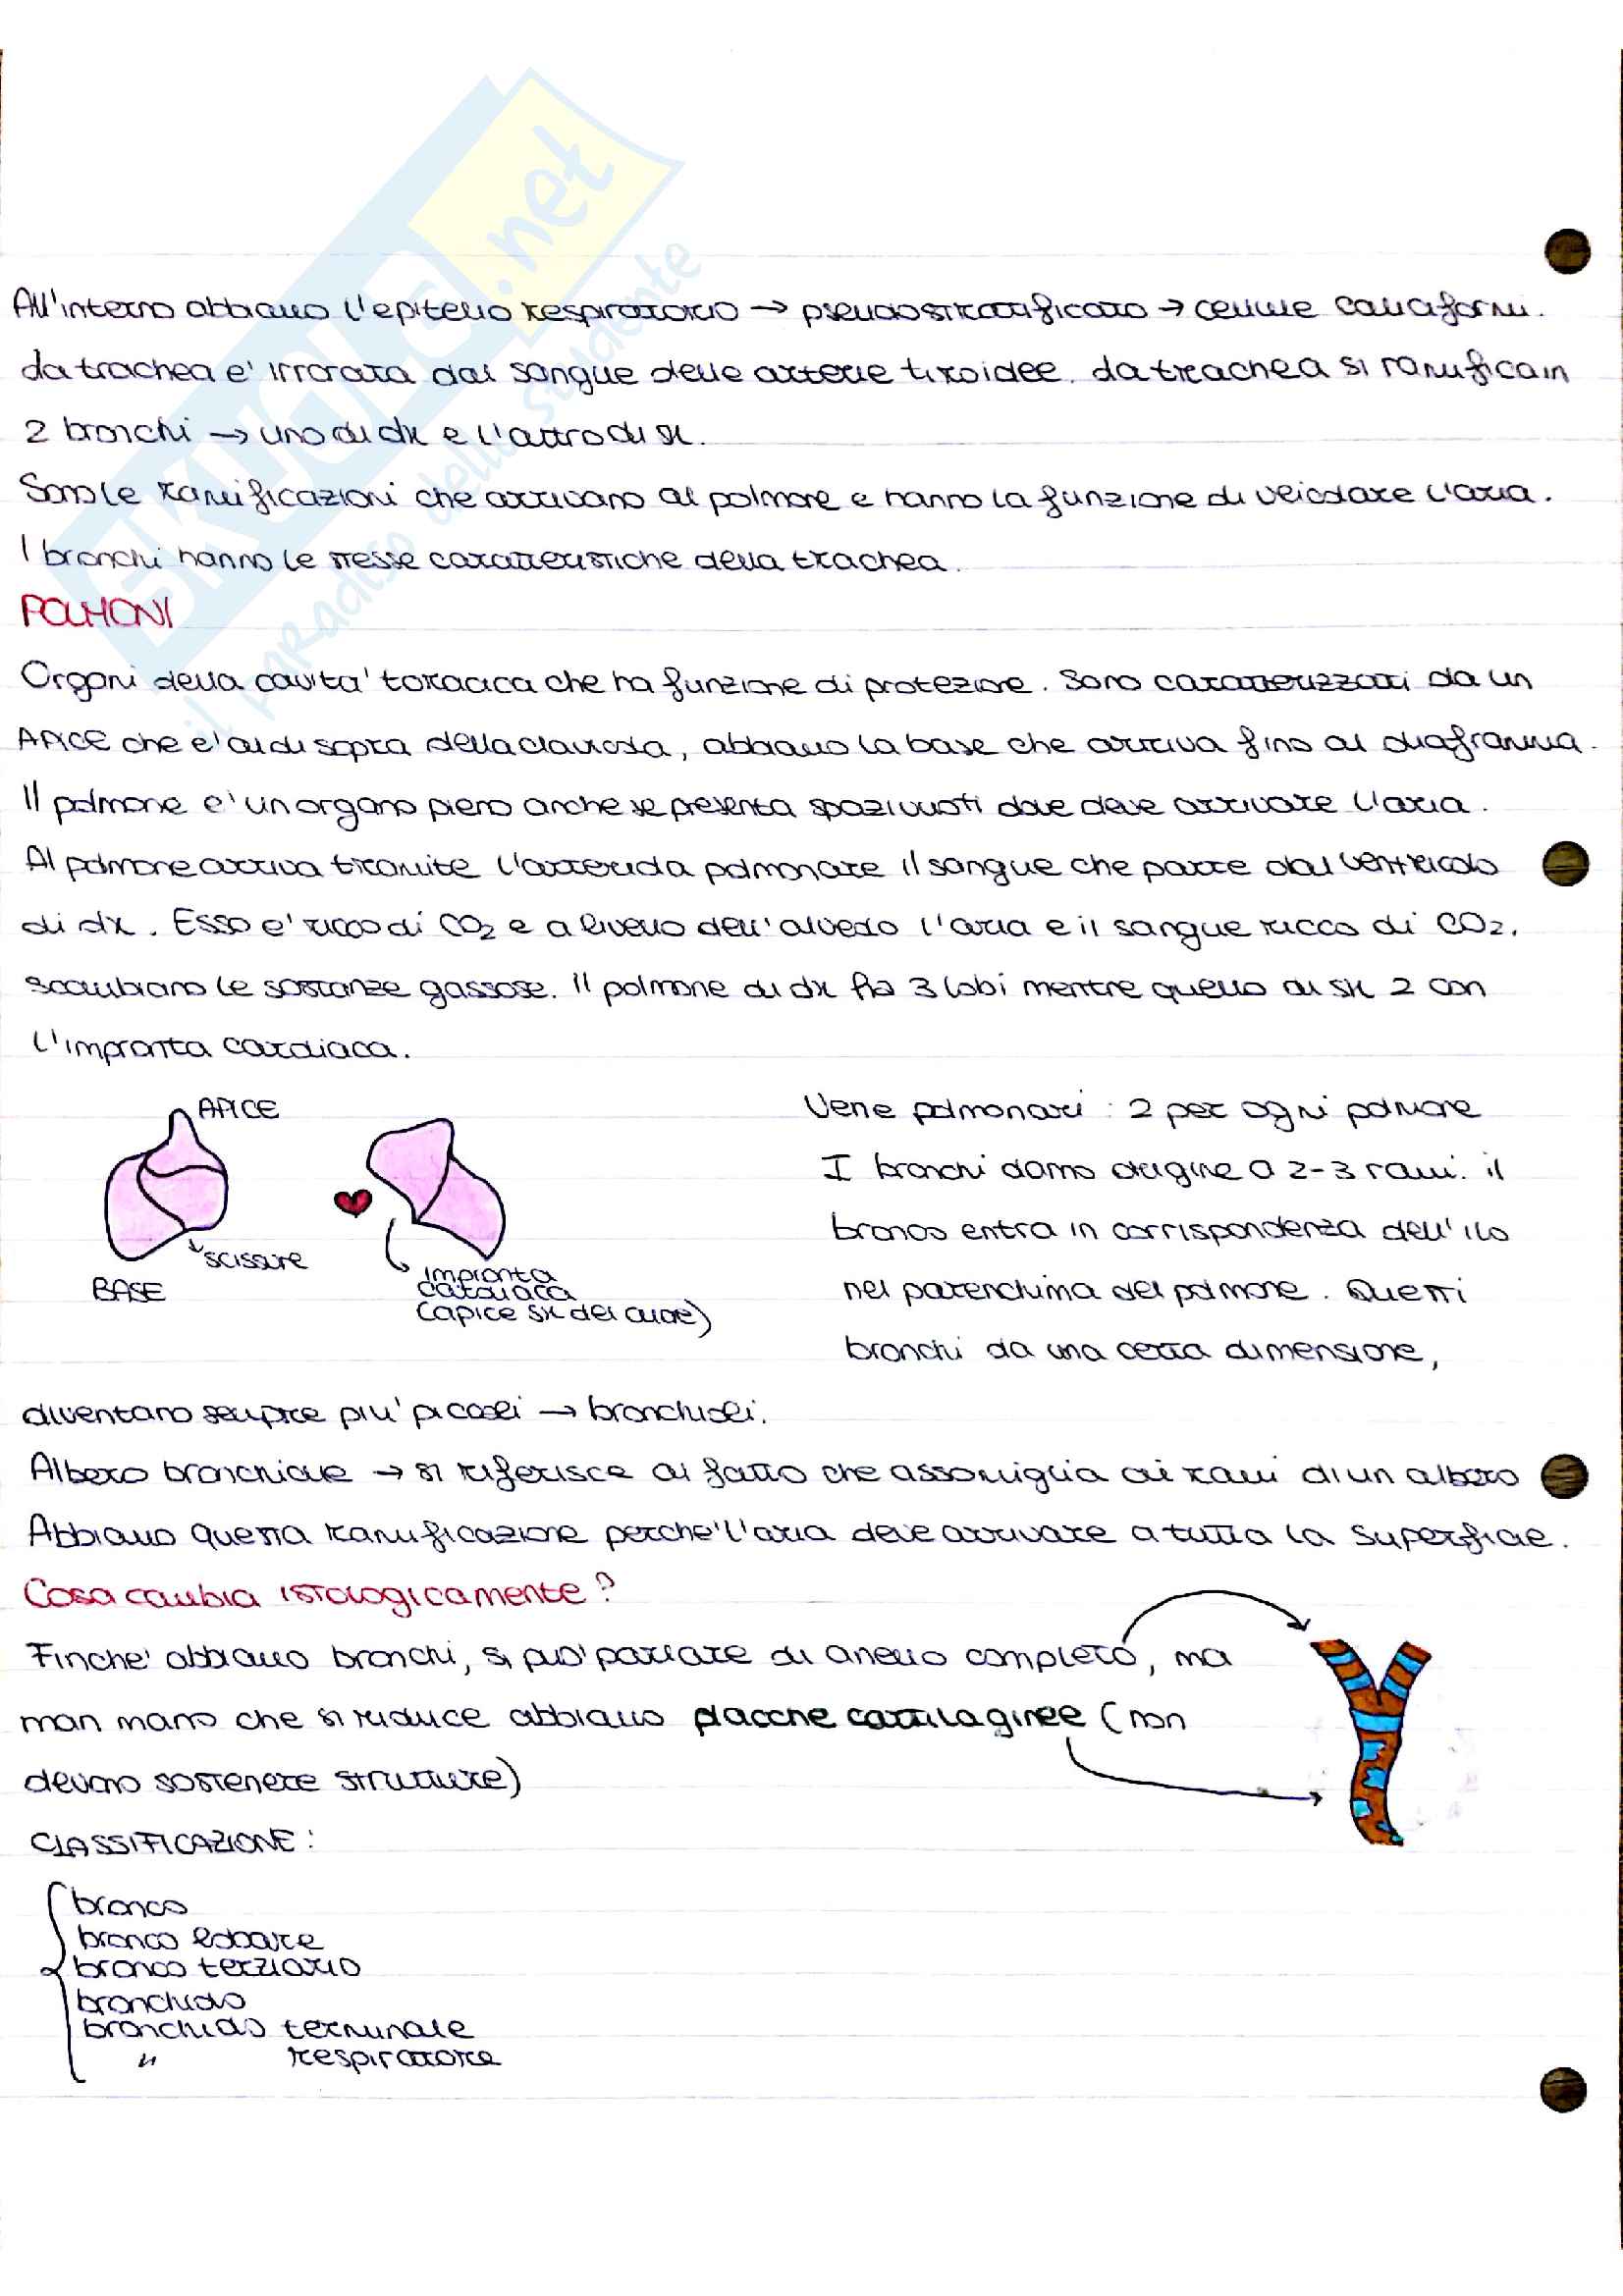 SKUOLA.net
il paradiso dello studente
All'interno abbiamo l'epitelio respiratorio → pseudostratificato → cellule caliciformi.
La trachea e' irrorata dal sangue delle arterie tiroidee. La trachea si ramifica in
2 bronchi → uno di dx e l'altro di sx.
Sono le ramificazioni che arrivano al polmone e hanno la funzione di veicolare l'aria.
I bronchi hanno le stesse caratteristiche della trachea.
POLMONI
Organi della cavita' toracica che ha funzione di protezione. Sono caratterizzati da un
APICE che e' al di sopra della clavicola, abbiamo la base che arriva fino al diaframma.
Il polmone e' un organo pieno anche se presenta spazi vuoti dove deve arrivare l'aria.
Al polmone arriva tramite l'arteriola polmonare il sangue che parte dal ventricolo
di dx. Esso e' ricco di CO2 e a livello dell'alveolo l'aria e il sangue ricco di CO2.
scambiano le sostanze gassose. Il polmone di dx ha 3 lobi mentre quello di sx 2 con
l'impronta cardiaca.
APICE
SCISSURE
BASE
IMPRONTA
CARDIACA
(apice sx del cuore)
Vene polmonari : 2 per ogni polmone
I bronchi danno origine a 2-3 rami. il
bronco entra in corrispondenza dell'ilo
nel parenchima del polmone. Questi
bronchi da una certa dimensione,
diventano sempre piu' piccoli → bronchioli.
Albero bronchiale → si riferisce al fatto che assomiglia ai rami di un albero
Abbiamo questa ramificazione perche' l'aria deve arrivare a tutta la superficie.
Cosa cambia istologicamente?
Finche' abbiamo bronchi, si puo' parlare di anello completo, ma
man mano che si riduce abbiamo placche cartilaginee (non
devono sostenere strutture)
CLASSIFICAZIONE:
bronco
bronco lobare
bronco terziario
bronchiolo
bronchiolo terminale
" respiratorio